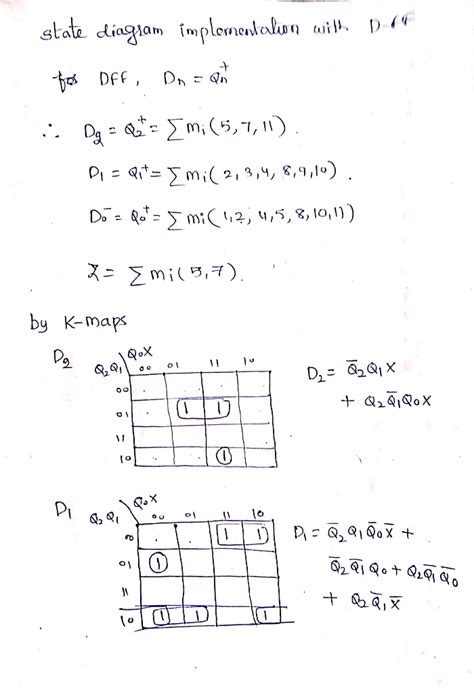 state diagram implementation with D-
for DFF, Dn = Qn⁺
∴ D2 = Q2⁺ = Σmi(5,7,11).
D1 = Q1⁺ = Σmi(2,3,4,8,9,10).
D0 = Q0⁺ = Σmi(1,2,4,5,8,10,11)
Z = Σmi(5,7).
by K-maps
D2
Q2Q1 \ Q0X
00 01 11 10
00
01 1 1
11
10 1
D2 = Q̅2Q1X
+ Q2Q̅1Q0X
D1
Q2Q1 \ Q0X
00 01 11 10
00 1 1
01 1
11
10 1 1 1
D1 = Q̅2Q1Q̅0X̅ +
Q̅2Q̅1Q0 + Q2Q̅1Q̅0
+ Q2Q̅1X̅